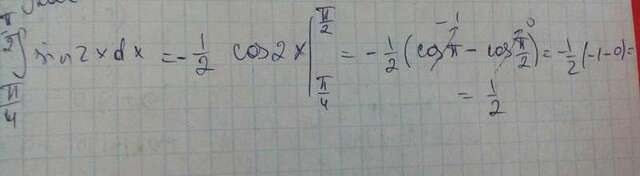 ∫_{π/4}^{π/2} sin2xdx = -1/2 cos2x |_{π/4}^{π/2} = -1/2 (cosπ - cos π/2) = -1/2 (-1-0) =
= 1/2